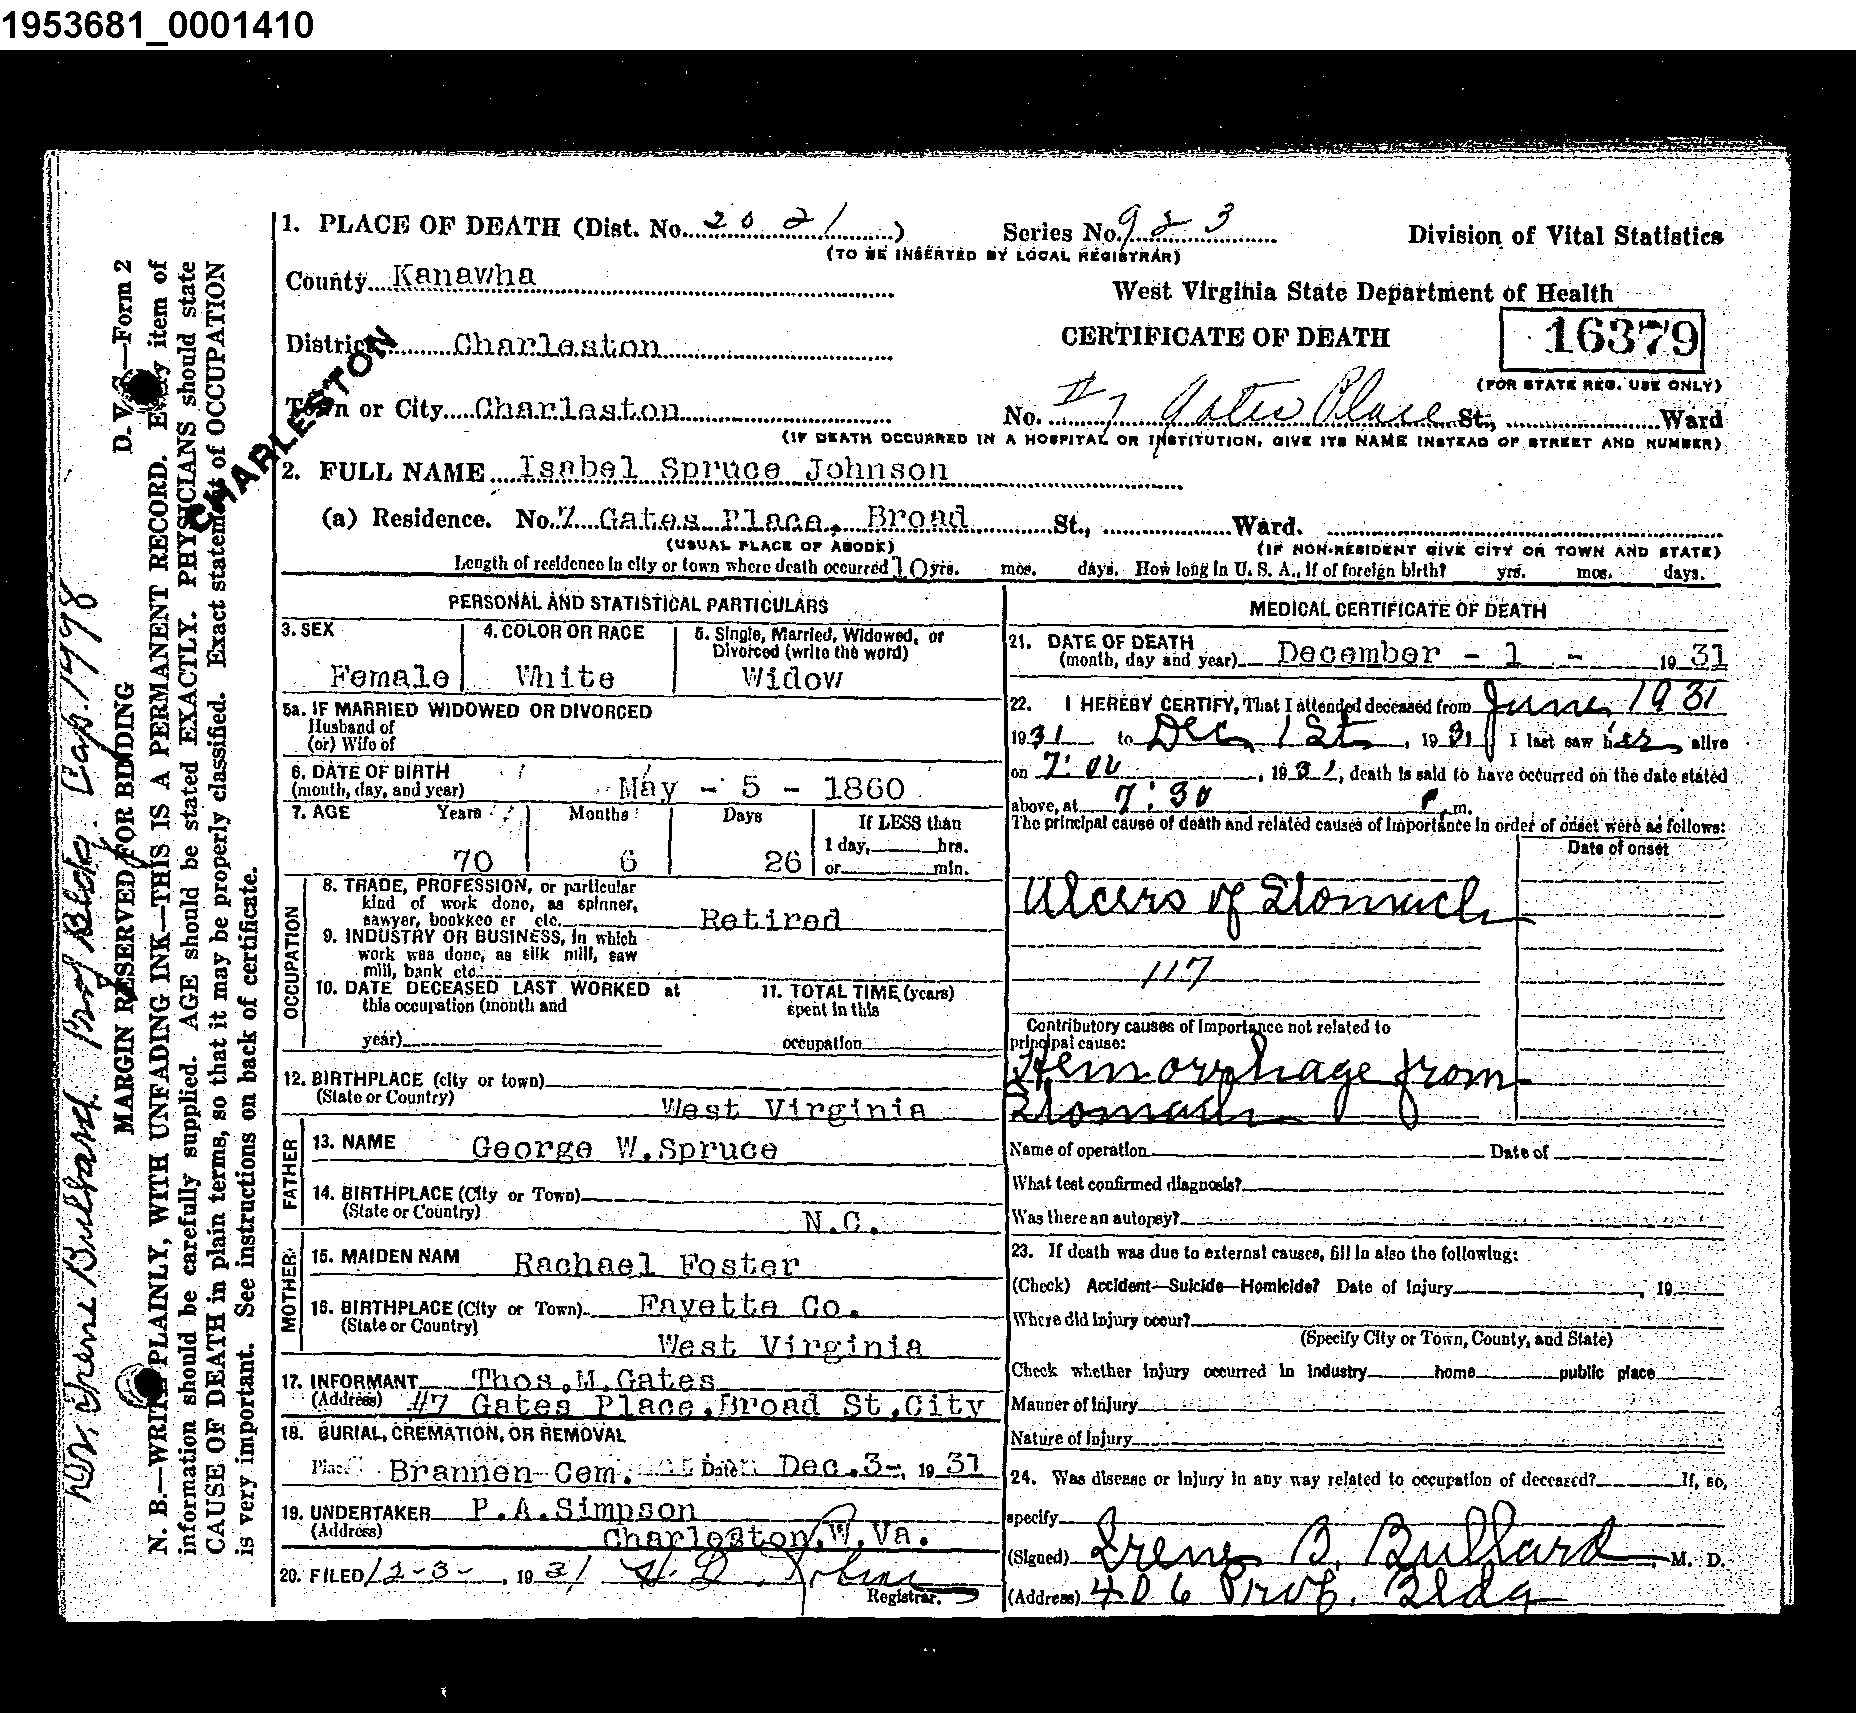 1953681_0001410
1. PLACE OF DEATH (Dist. No. 20 21)
Series No. 923
Division of Vital Statistics
(TO BE INSERTED BY LOCAL REGISTRAR)
County Kanawha
West Virginia State Department of Health
District Charleston
CERTIFICATE OF DEATH
16379
(FOR STATE REG. USE ONLY)
CHARLESTON
Town or City Charleston
No. #7 Gates Place St., Ward
(IF DEATH OCCURRED IN A HOSPITAL OR INSTITUTION, GIVE ITS NAME INSTEAD OF STREET AND NUMBER)
2. FULL NAME Isabel Spruce Johnson
(a) Residence. No. 7 Gates Place, Broad St., Ward.
(USUAL PLACE OF ABODE)
(IF NON-RESIDENT GIVE CITY OR TOWN AND STATE)
Length of residence in city or town where death occurred 10 yrs. mos. days. How long in U. S. A., if of foreign birth? yrs. mos. days.
PERSONAL AND STATISTICAL PARTICULARS
3. SEX
Female
4. COLOR OR RACE
White
5. Single, Married, Widowed, or
Divorced (write the word)
Widow
5a. IF MARRIED WIDOWED OR DIVORCED
Husband of
(or) Wife of
6. DATE OF BIRTH
(month, day, and year) May - 5 - 1860
7. AGE Years Months Days If LESS than
1 day, hrs.
70 6 26 or min.
OCCUPATION
8. TRADE, PROFESSION, or particular
kind of work done, as spinner,
sawyer, bookkee er etc. Retired
9. INDUSTRY OR BUSINESS, in which
work was done, as silk mill, saw
mill, bank etc.
10. DATE DECEASED LAST WORKED at
this occupation (month and
year)
11. TOTAL TIME (years)
spent in this
occupation
12. BIRTHPLACE (city or town)
(State or Country) West Virginia
FATHER
13. NAME George W. Spruce
14. BIRTHPLACE (City or Town)
(State or Country) N.C.
MOTHER
15. MAIDEN NAM Rachael Foster
16. BIRTHPLACE (City or Town) Fayette Co.
(State or Country) West Virginia
17. INFORMANT Thos. M. Gates
(Address) #7 Gates Place, Broad St, City
18. BURIAL, CREMATION, OR REMOVAL
Place Brannen Cem. Date Dec. 3-, 1931
19. UNDERTAKER P.A. Simpson
(Address) Charleston, W. Va.
20. FILED 12-3-, 1931
Registrar.
MEDICAL CERTIFICATE OF DEATH
21. DATE OF DEATH
(month, day and year) December - 1 - 1931
22. I HEREBY CERTIFY, That I attended deceased from June, 1931
1931 to Dec 1st, 1931 I last saw her alive
on 7:00, 1931, death is said to have occurred on the date stated
above, at 7:30 P. m.
The principal cause of death and related causes of importance in order of onset were as follows:
Date of onset
Ulcers of Stomach
117
Contributory causes of importance not related to
principal cause:
Hemorrhage from
Stomach
Name of operation Date of
What test confirmed diagnosis?
Was there an autopsy?
23. If death was due to external causes, fill in also the following:
(Check) Accident—Suicide—Homicide? Date of injury , 19
Where did injury occur?
(Specify City or Town, County, and State)
Check whether injury occurred in industry home public place
Manner of Injury
Nature of Injury
24. Was disease or injury in any way related to occupation of deceased? If, so,
specify
(Signed) Irene B. Bullard, M. D.
(Address) 406 Prof. Bldg
D. V. S.—Form 2
MARGIN RESERVED FOR BINDING
N. B.—WRITE PLAINLY, WITH UNFADING INK—THIS IS A PERMANENT RECORD. Every item of
information should be carefully supplied. AGE should be stated EXACTLY. PHYSICIANS should state
CAUSE OF DEATH in plain terms, so that it may be properly classified. Exact statement of OCCUPATION
is very important. See instructions on back of certificate.
Dr. Irene Bullard. Prof Bldg. Cap. 1998